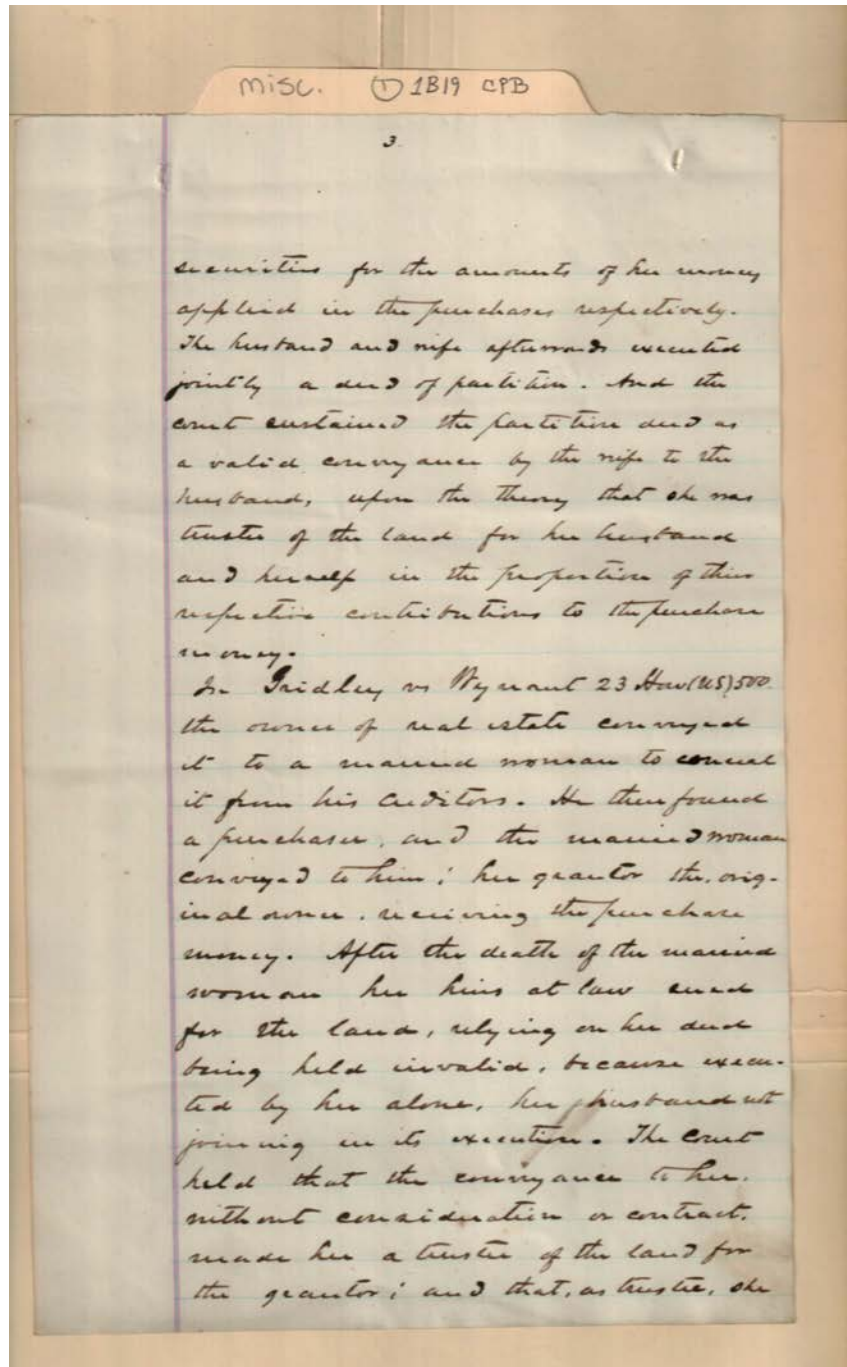 misc. ① 1B19 CPB
3
securities for the amounts of her money
applied in the purchases respectively.
The husband and wife afterwards executed
jointly a deed of partition. And the
court sustained the partition deed as
a valid conveyance by the wife to the
husband, upon the theory that she was
trustee of the land for her husband
and herself in the proportion of their
respective contributions to the purchase
money.
In Gridley vs Wynant 23 How (US) 500
the owner of real estate conveyed
it to a married woman to conceal
it from his creditors. He then found
a purchaser, and the married woman
conveyed to him; her grantor the orig-
inal owner, receiving the purchase
money. After the death of the married
woman her heirs at law sued
for the land, relying on her deed
being held invalid, because execu-
ted by her alone, her husband not
joining in its execution. The Court
held that the conveyance to her,
without consideration or contract,
made her a trustee of the land for
the grantor; and that, as trustee, she